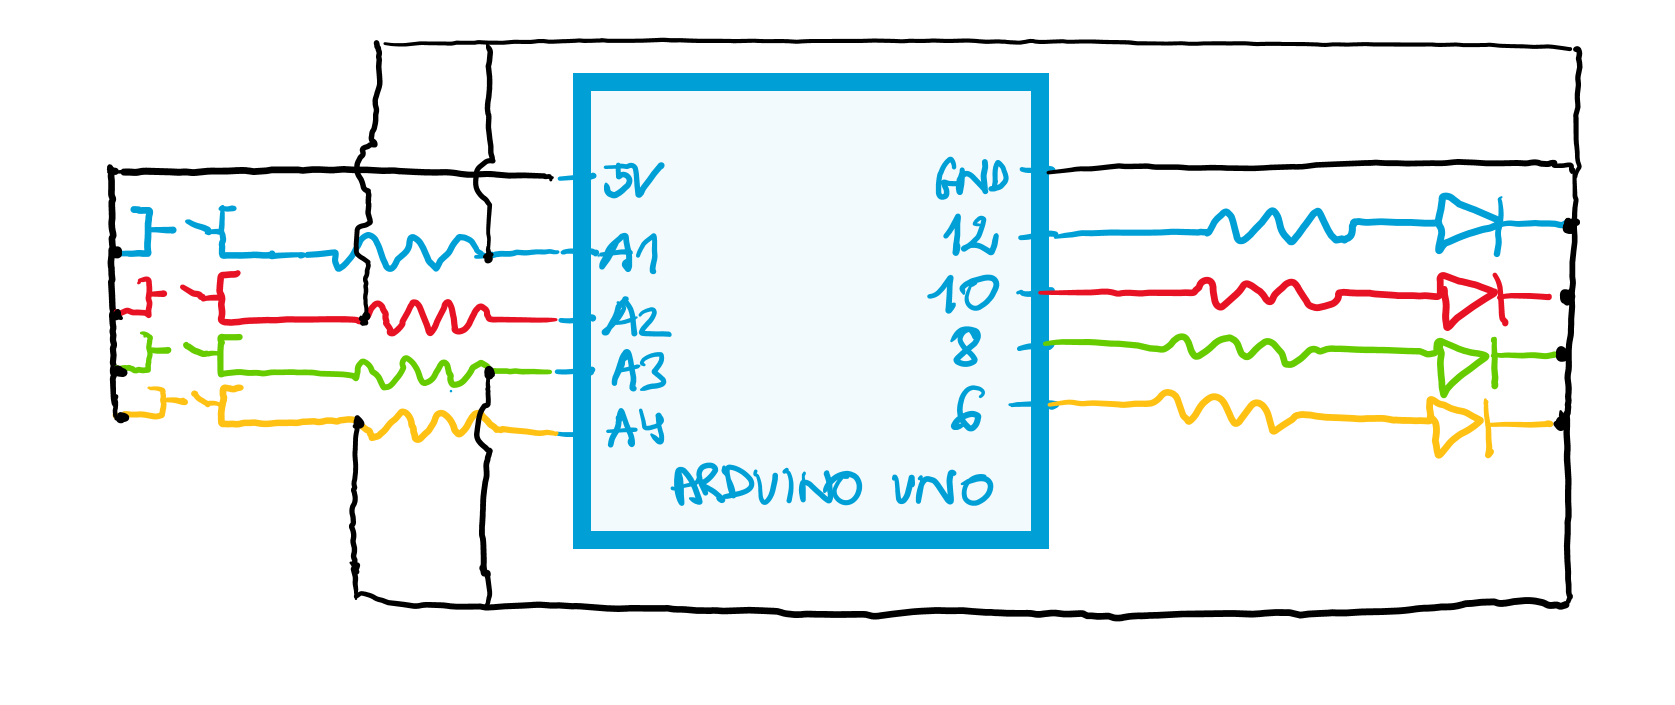 5V
A1
A2
A3
A4
GND
12
10
8
6
ARDUINO UNO